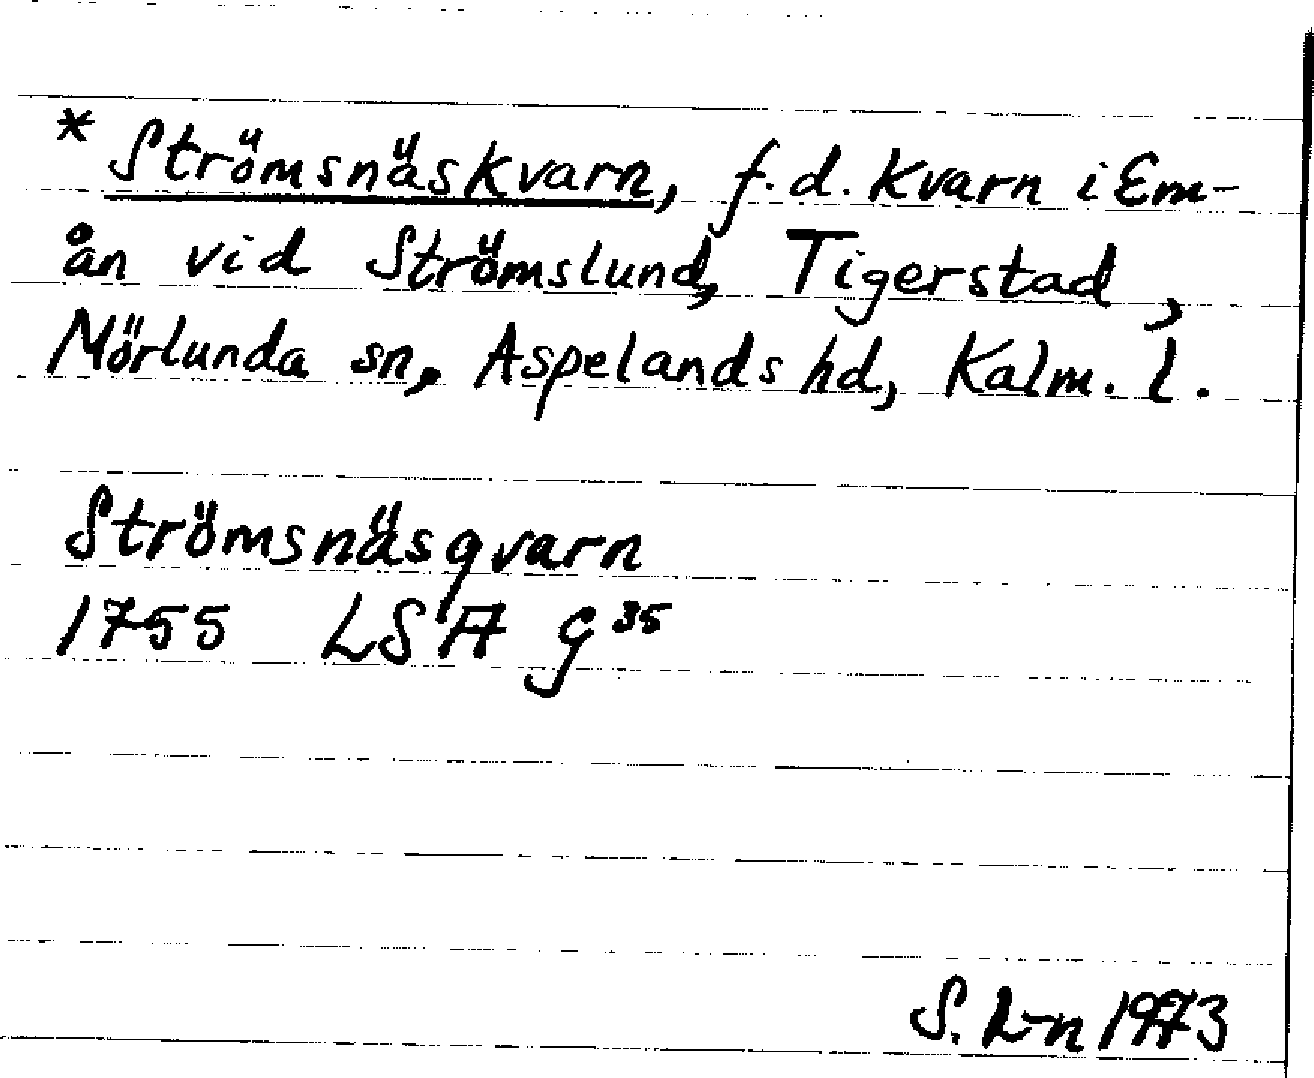 * Strömsnäskvarn, f.d. kvarn i Em-
ån vid Strömslund, Tigerstad,
Mörlunda sn, Aspelands hd, Kalm. l.
Strömsnäsqvarn
1755 LSA G 35
S. L-n 1973